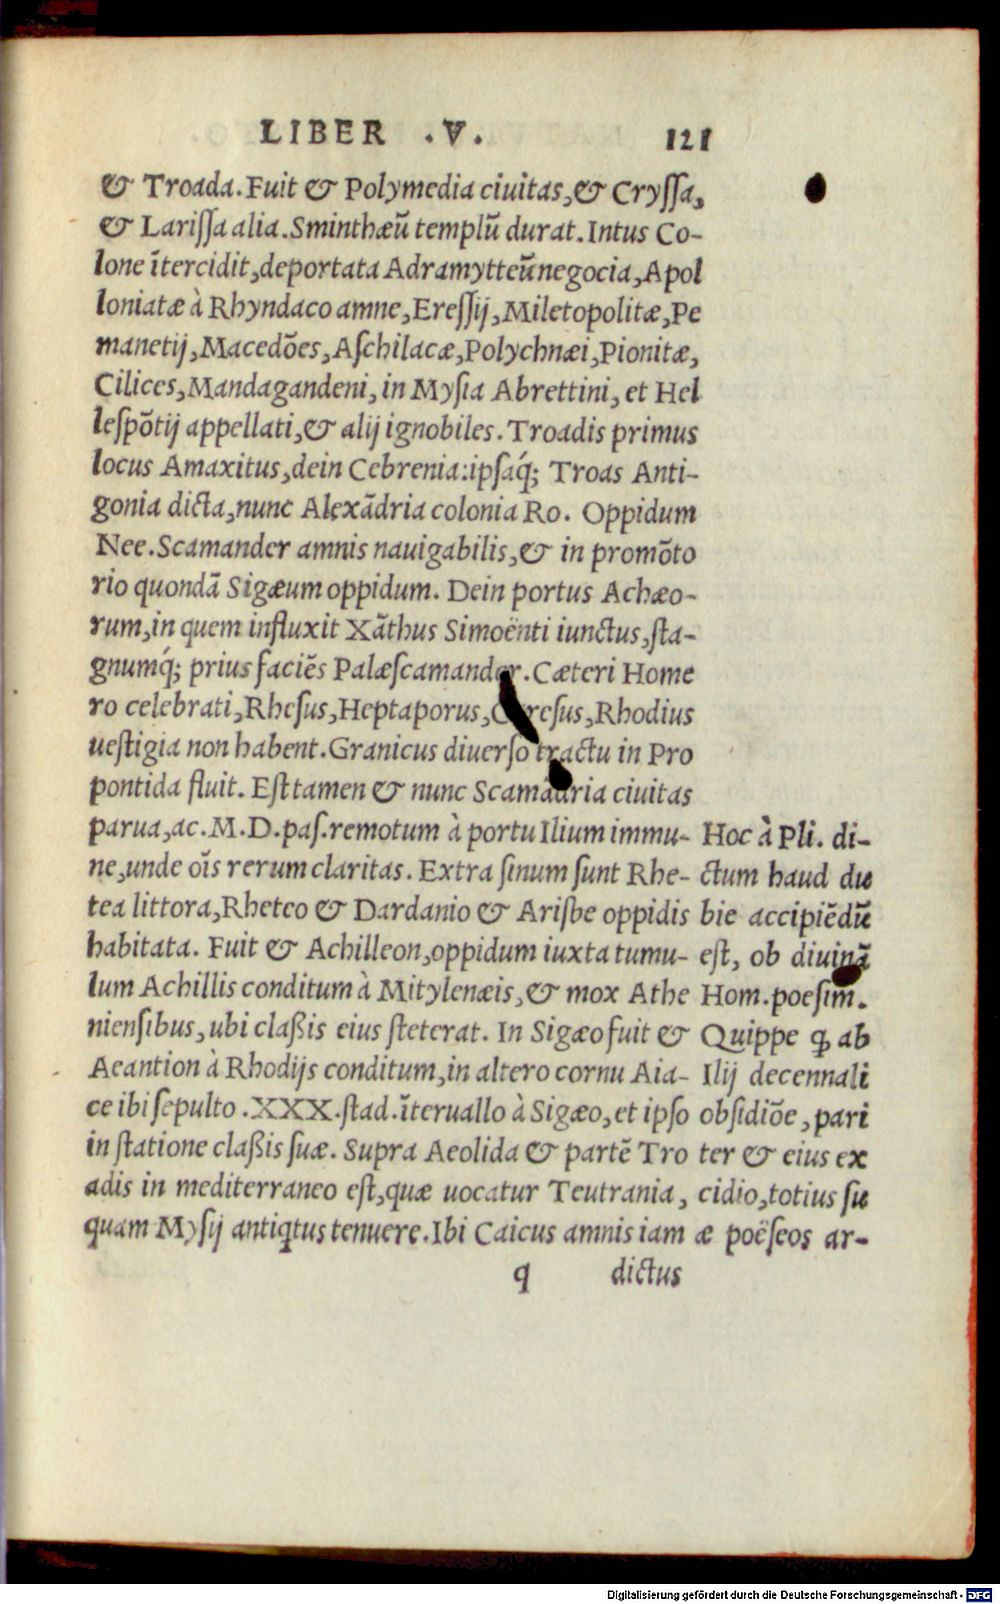 LIBER .V. 121
& Troada. Fuit & Polymedia ciuitas, & Cryſſa,
& Lariſſa alia. Sminthæũ templũ durat. Intus Co-
lone ĩtercidit, deportata Adramytteũ negocia, Apol
loniatæ à Rhyndaco amne, Ereſſij, Miletopolitæ, Pe
manetij, Macedões, Aſchilacæ, Polychnæi, Pionitæ,
Cilices, Mandagandeni, in Myſia Abrettini, et Hel
leſpõtij appellati, & alij ignobiles. Troadis primus
locus Amaxitus, dein Cebrenia: ipſaq́; Troas Anti-
gonia dicta, nunc Alexãdria colonia Ro. Oppidum
Nee. Scamander amnis nauigabilis, & in promõto
rio quondã Sigæum oppidum. Dein portus Achæo-
rum, in quem influxit Xãthus Simoënti iunctus, ſta-
gnumq́; prius faciẽs Palæſcamander. Cæteri Home
ro celebrati, Rheſus, Heptaporus, reſus, Rhodius
ueſtigia non habent. Granicus diuerſo tractu in Pro
pontida fluit. Eſt tamen & nunc Scamãdria ciuitas
parua, ac .M.D. paſ. remotum à portu Ilium immu-
ne, unde oĩs rerum claritas. Extra ſinum ſunt Rhe-
tea littora, Rheteo & Dardanio & Arisbe oppidis
habitata. Fuit & Achilleon, oppidum iuxta tumu-
lum Achillis conditum à Mitylenæis, & mox Athe
nienſibus, ubi claßis eius ſteterat. In Sigæo fuit &
Aeantion à Rhodijs conditum, in altero cornu Aia-
ce ibi ſepulto .XXX. ſtad. ĩteruallo à Sigæo, et ipſo
in ſtatione claßis ſuæ. Supra Aeolida & partẽ Tro
adis in mediterraneo eſt, quæ uocatur Teutrania,
quam Myſij antiqtus tenuere. Ibi Caicus amnis iam
q dictus
Hoc à Pli. di-
ctum haud du
bie accipiẽdũ
eſt, ob diuinã
Hom. poeſim.
Quippe ꝙ ab
Ilij decennali
obſidiõe, pari
ter & eius ex
cidio, totius ſu
æ poëſeos ar-
Digitalisierung gefördert durch die Deutsche Forschungsgemeinschaft - DFG